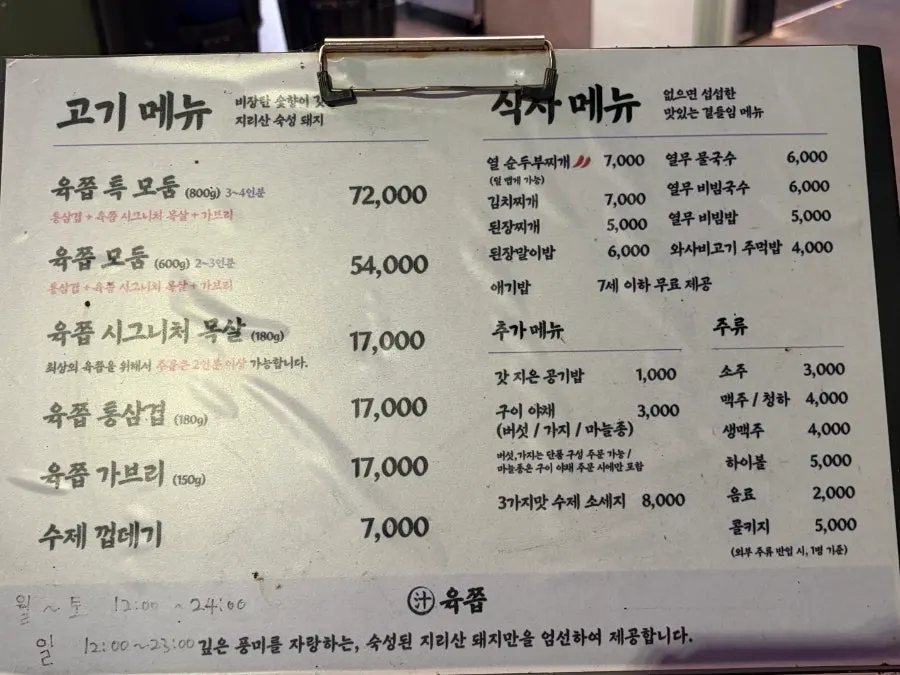 고기 메뉴
비장탄 숯향이
지리산 숙성 돼지
육쫍 특 모둠 (800g) 3~4인분 72,000
통삼겹 + 육쫍 시그니처 목살 + 가브리
육쫍 모둠 (600g) 2~3인분 54,000
통삼겹 + 육쫍 시그니처 목살 + 가브리
육쫍 시그니처 목살 (180g) 17,000
최상의 육쫍을 위해서 주문은 2인분 이상 가능합니다.
육쫍 통삼겹 (180g) 17,000
육쫍 가브리 (150g) 17,000
수제 껍데기 7,000
식사 메뉴
없으면 섭섭한
맛있는 곁들임 메뉴
열 순두부찌개 7,000
(덜 맵게 가능)
김치찌개 7,000
된장찌개 5,000
된장말이밥 6,000
애기밥 7세 이하 무료 제공
열무 물국수 6,000
열무 비빔국수 6,000
열무 비빔밥 5,000
와사비고기 주먹밥 4,000
추가 메뉴
갓 지은 공기밥 1,000
구이 야채 3,000
(버섯 / 가지 / 마늘종)
버섯,가지는 단품 구성 주문 가능 /
마늘종은 구이 야채 주문 시에만 포함
3가지맛 수제 소세지 8,000
주류
소주 3,000
맥주 / 청하 4,000
생맥주 4,000
하이볼 5,000
음료 2,000
콜키지 5,000
(외부 주류 반입 시, 1병 기준)
汁 육쫍
월 ~ 토 12:00 ~ 24:00
일 12:00~23:00
깊은 풍미를 자랑하는, 숙성된 지리산 돼지만을 엄선하여 제공합니다.